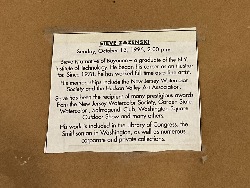 STEVE ZAZENSKI
Sunday, October 13, 1996, 2:00 p.m.
Steve is a native of Bayonne - a graduate of the N.Y.
Institute of Technology. He began his career as an
Since 1981, he has worked full time as a fine artist.
His memberships include the New Jersey Watercolor
Society and the Hudson Valley Art Association.
Steve has been the recipient of many prestigious awards
from the New Jersey Watercolor Society, Garden State
Watercolor, Salmagundi Club, Washington Square
Outdoor Show and many others.
His work is included in the Library of Congress, the
Smithsonian in Washington, as well as numerous
corporate and private collections.